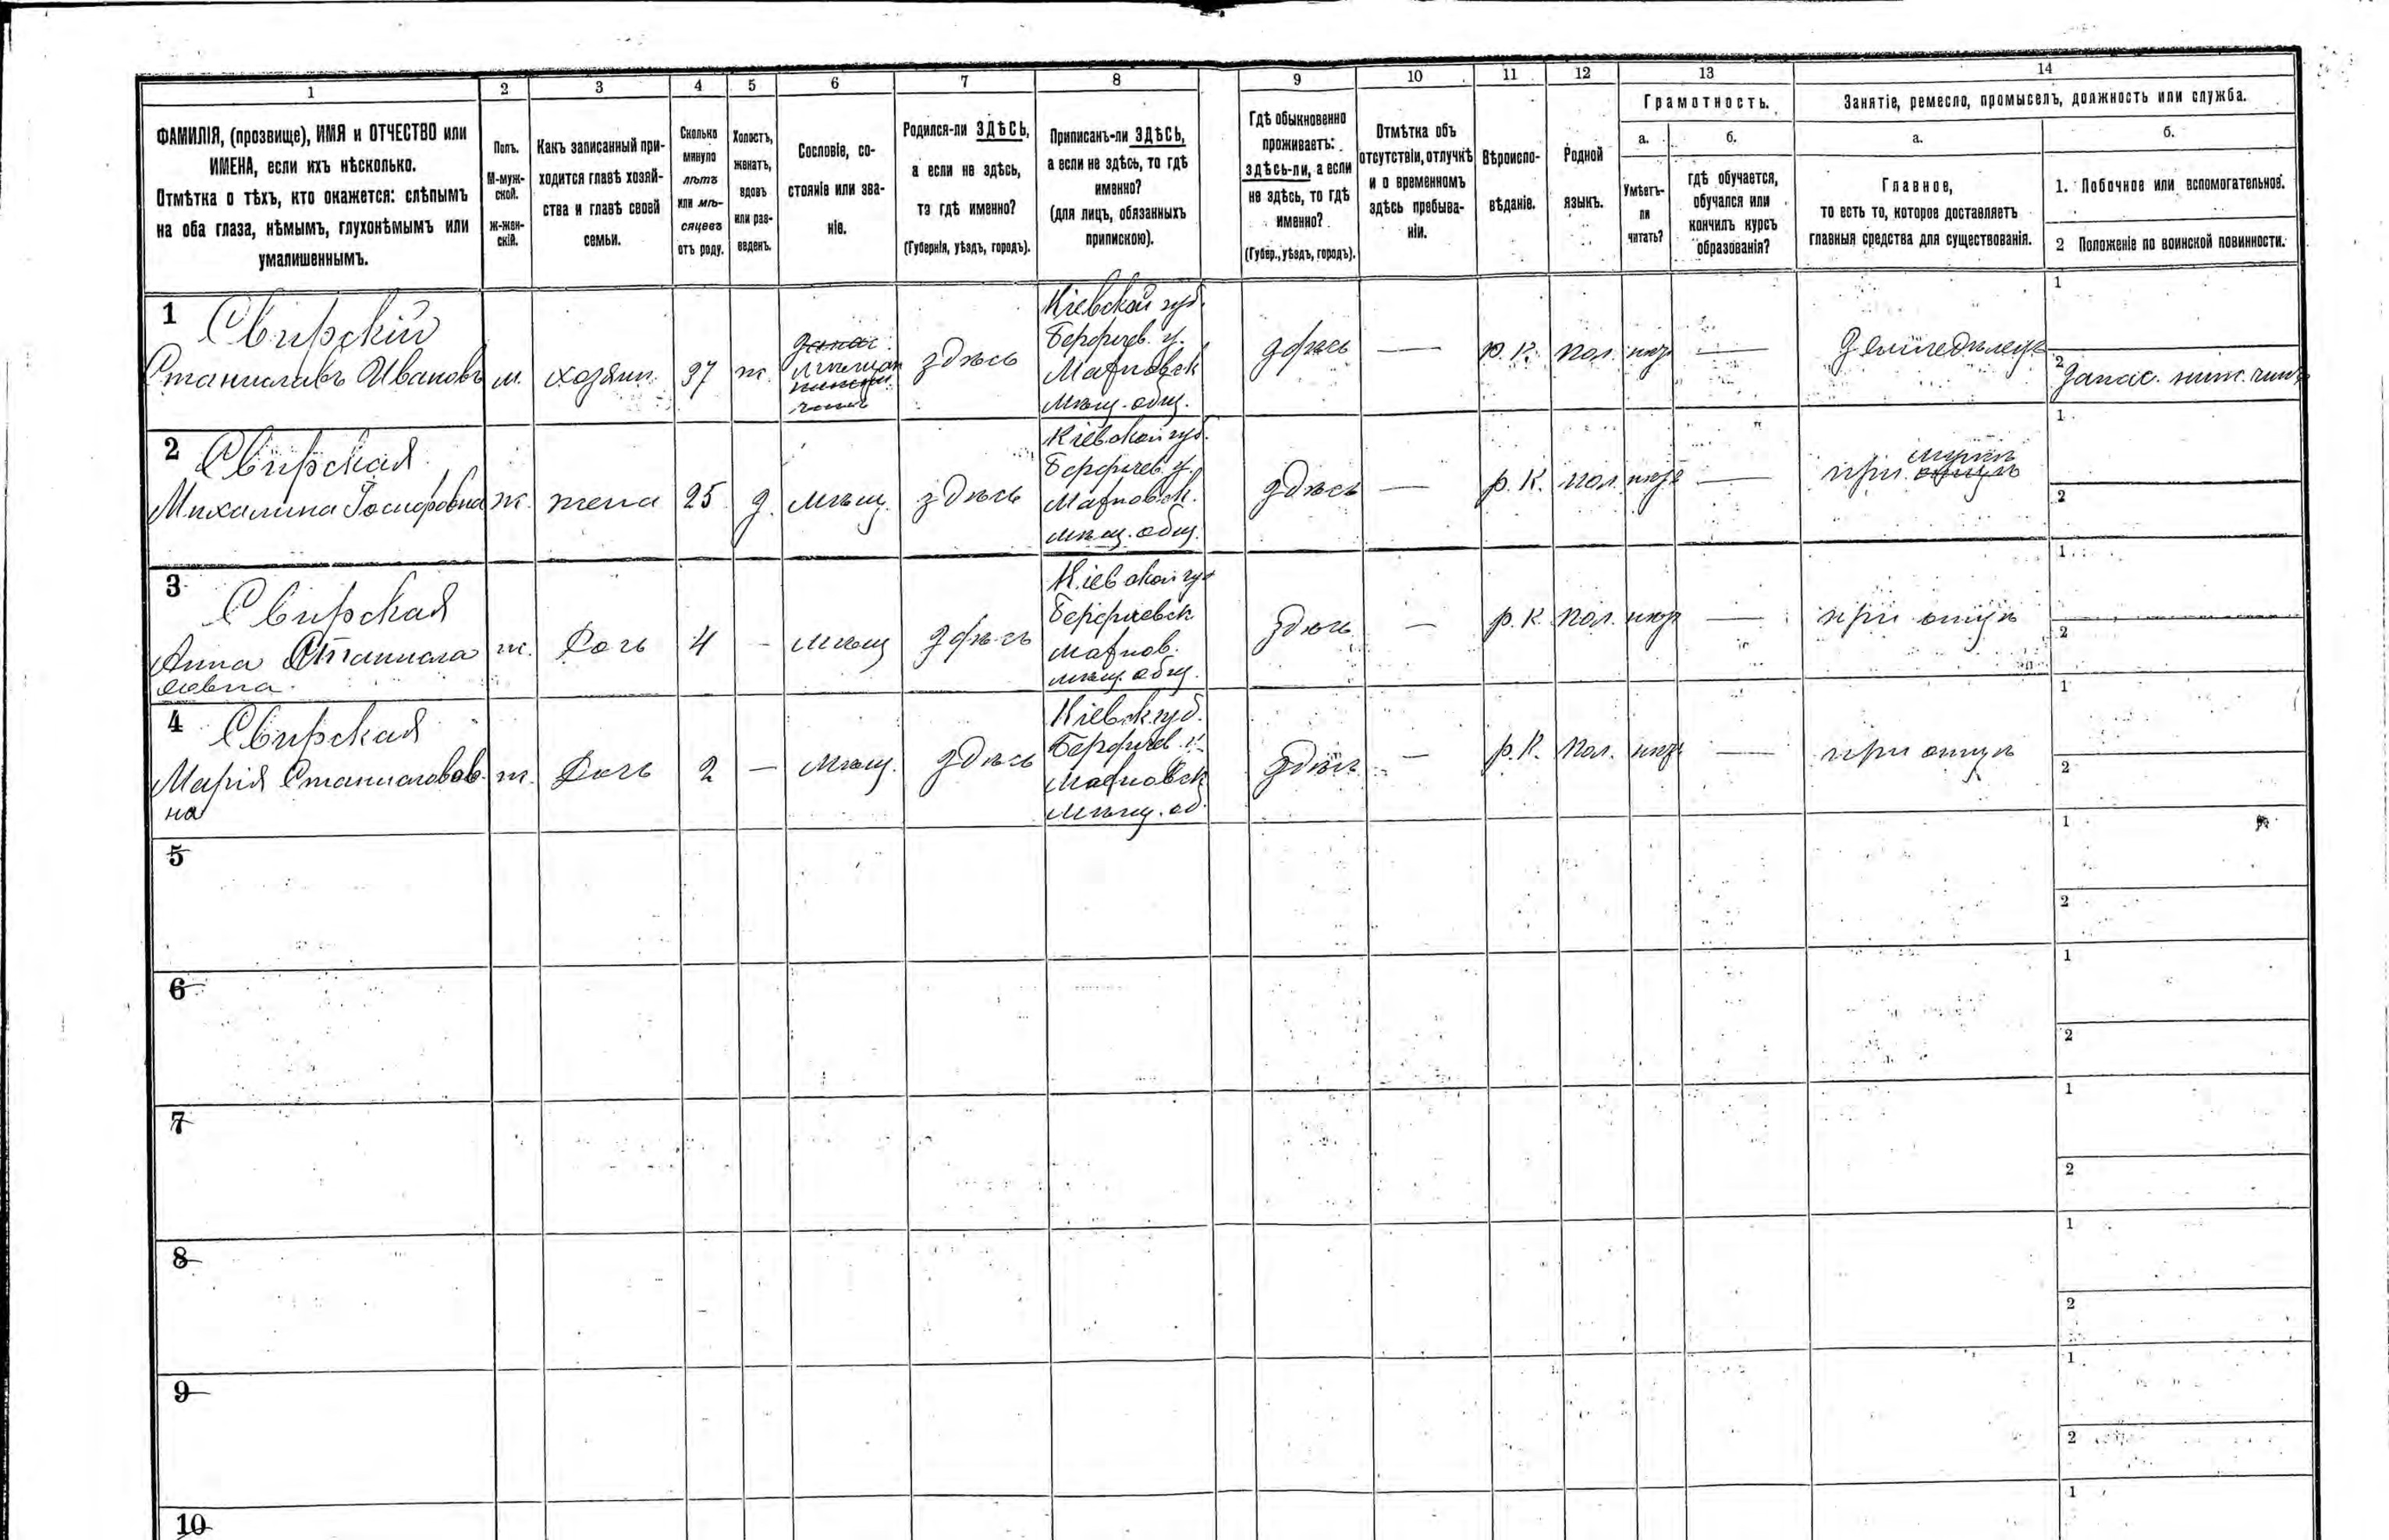 1 2 3 4 5 6 7 8 9 10 11 12 13 14
ФАМИЛІЯ, (прозвище), ИМЯ и ОТЧЕСТВО или
ИМЕНА, если ихъ нѣсколько.
Отмѣтка о тѣхъ, кто окажется: слѣпымъ
на оба глаза, нѣмымъ, глухонѣмымъ или
умалишеннымъ.
Полъ.
М-муж-
ской.
ж-жен-
скій.
Какъ записанный при-
ходится главѣ хозяй-
ства и главѣ своей
семьи.
Сколько
минуло
лѣтъ
или мѣ-
сяцевъ
отъ роду.
Холостъ,
женатъ,
вдовъ
или раз-
веденъ.
Сословіе, со-
стояніе или зва-
ніе.
Родился-ли ЗДѢСЬ,
а если не здѣсь,
то гдѣ именно?
(Губернія, уѣздъ, городъ).
Приписанъ-ли ЗДѢСЬ,
а если не здѣсь, то гдѣ
именно?
(для лицъ, обязанныхъ
припискою).
Гдѣ обыкновенно
проживаетъ:
здѣсь-ли, а если
не здѣсь, то гдѣ
именно?
(Губер., уѣздъ, городъ).
Отмѣтка объ
отсутствіи, отлучкѣ
и о временномъ
здѣсь пребыва-
ніи.
Вѣроиспо-
вѣданіе.
Родной
языкъ.
Грамотность.
а.
Умѣетъ-
ли
читать?
б.
гдѣ обучается,
обучался или
кончилъ курсъ
образованія?
Занятіе, ремесло, промыселъ, должность или служба.
а.
Главное,
то есть то, которое доставляетъ
главныя средства для существованія.
б.
1. Побочное или вспомогательное.
2 Положеніе по воинской повинности.
1 Свирскій
Станиславъ Ивановъ
м.
хозяин.
37
ж.
здѣсь
Кіевской губ.
Бердичев. у.
Махновск
Мѣщ. общ.
здѣсь
—
р. К.
пол.
—
Земледѣлецъ
1
2 Запас. ниж. чинъ
2 Свирская
Михалина Іосифовна
ж.
жена
25
з.
мѣщ.
здѣсь
Кіевской губ.
Бердичев. у.
Махновск.
мѣщ. общ.
здѣсь
—
р. К.
пол.
—
при мужѣ
1
2
3 Свирская
Анна Станисла
вовна.
ж.
Дочь
4
—
мѣщ
здѣсь
Кіевской губ
Бердичевск
махнов.
мѣщ. общ.
здѣсь
—
р. К.
пол.
—
при отцѣ
1
2
4 Свирская
Марія Станиславов
на
ж.
Дочь
2
—
Мѣщ.
здѣсь
Кіевск. губ.
Бердичев. у.
Махновск
Мѣщ. об.
здѣсь
—
р. К.
пол.
—
при отцѣ
1
2
5
1
2
6
1
2
7
1
2
8
1
2
9
1
2
10
1